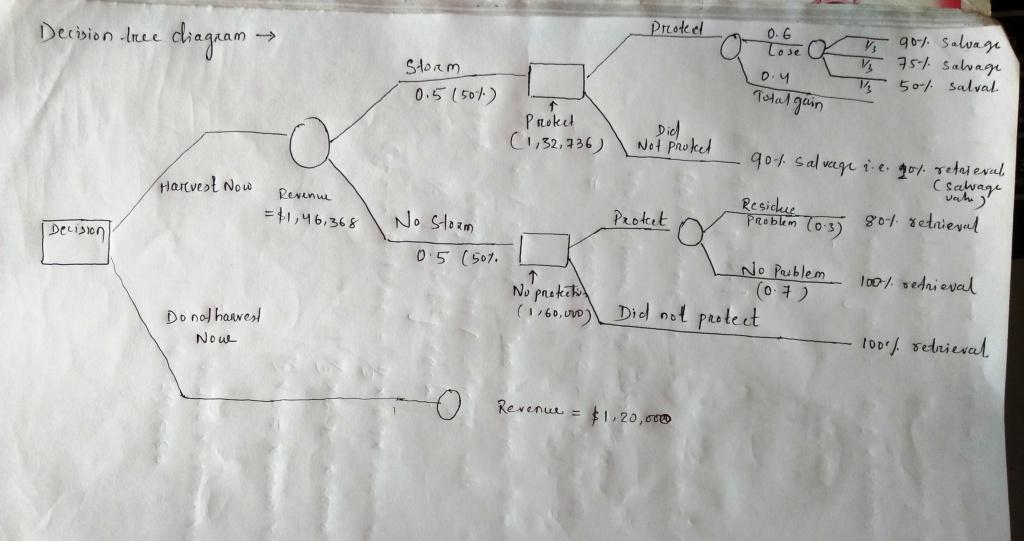 Decision tree diagram →
Decision
Harvest Now
Revenue
= $1,46,368
Storm
0.5 (50%)
Protect
(1,32,736)
Protect
0.6
Lose
1/3
90% Salvage
1/3
75% Salvage
1/3
50% salval
0.4
Total gain
Did
Not protect
90% salvage i.e. 90% retrieval
(Salvage
No Storm
0.5 (50%
No protection
(1,60,000)
Protect
Residue
problem (0.3)
80% retrieval
No Problem
(0.7)
100% retrieval
Did not protect
100% retrieval
Do not harvest
Now
Revenue = $1,20,000